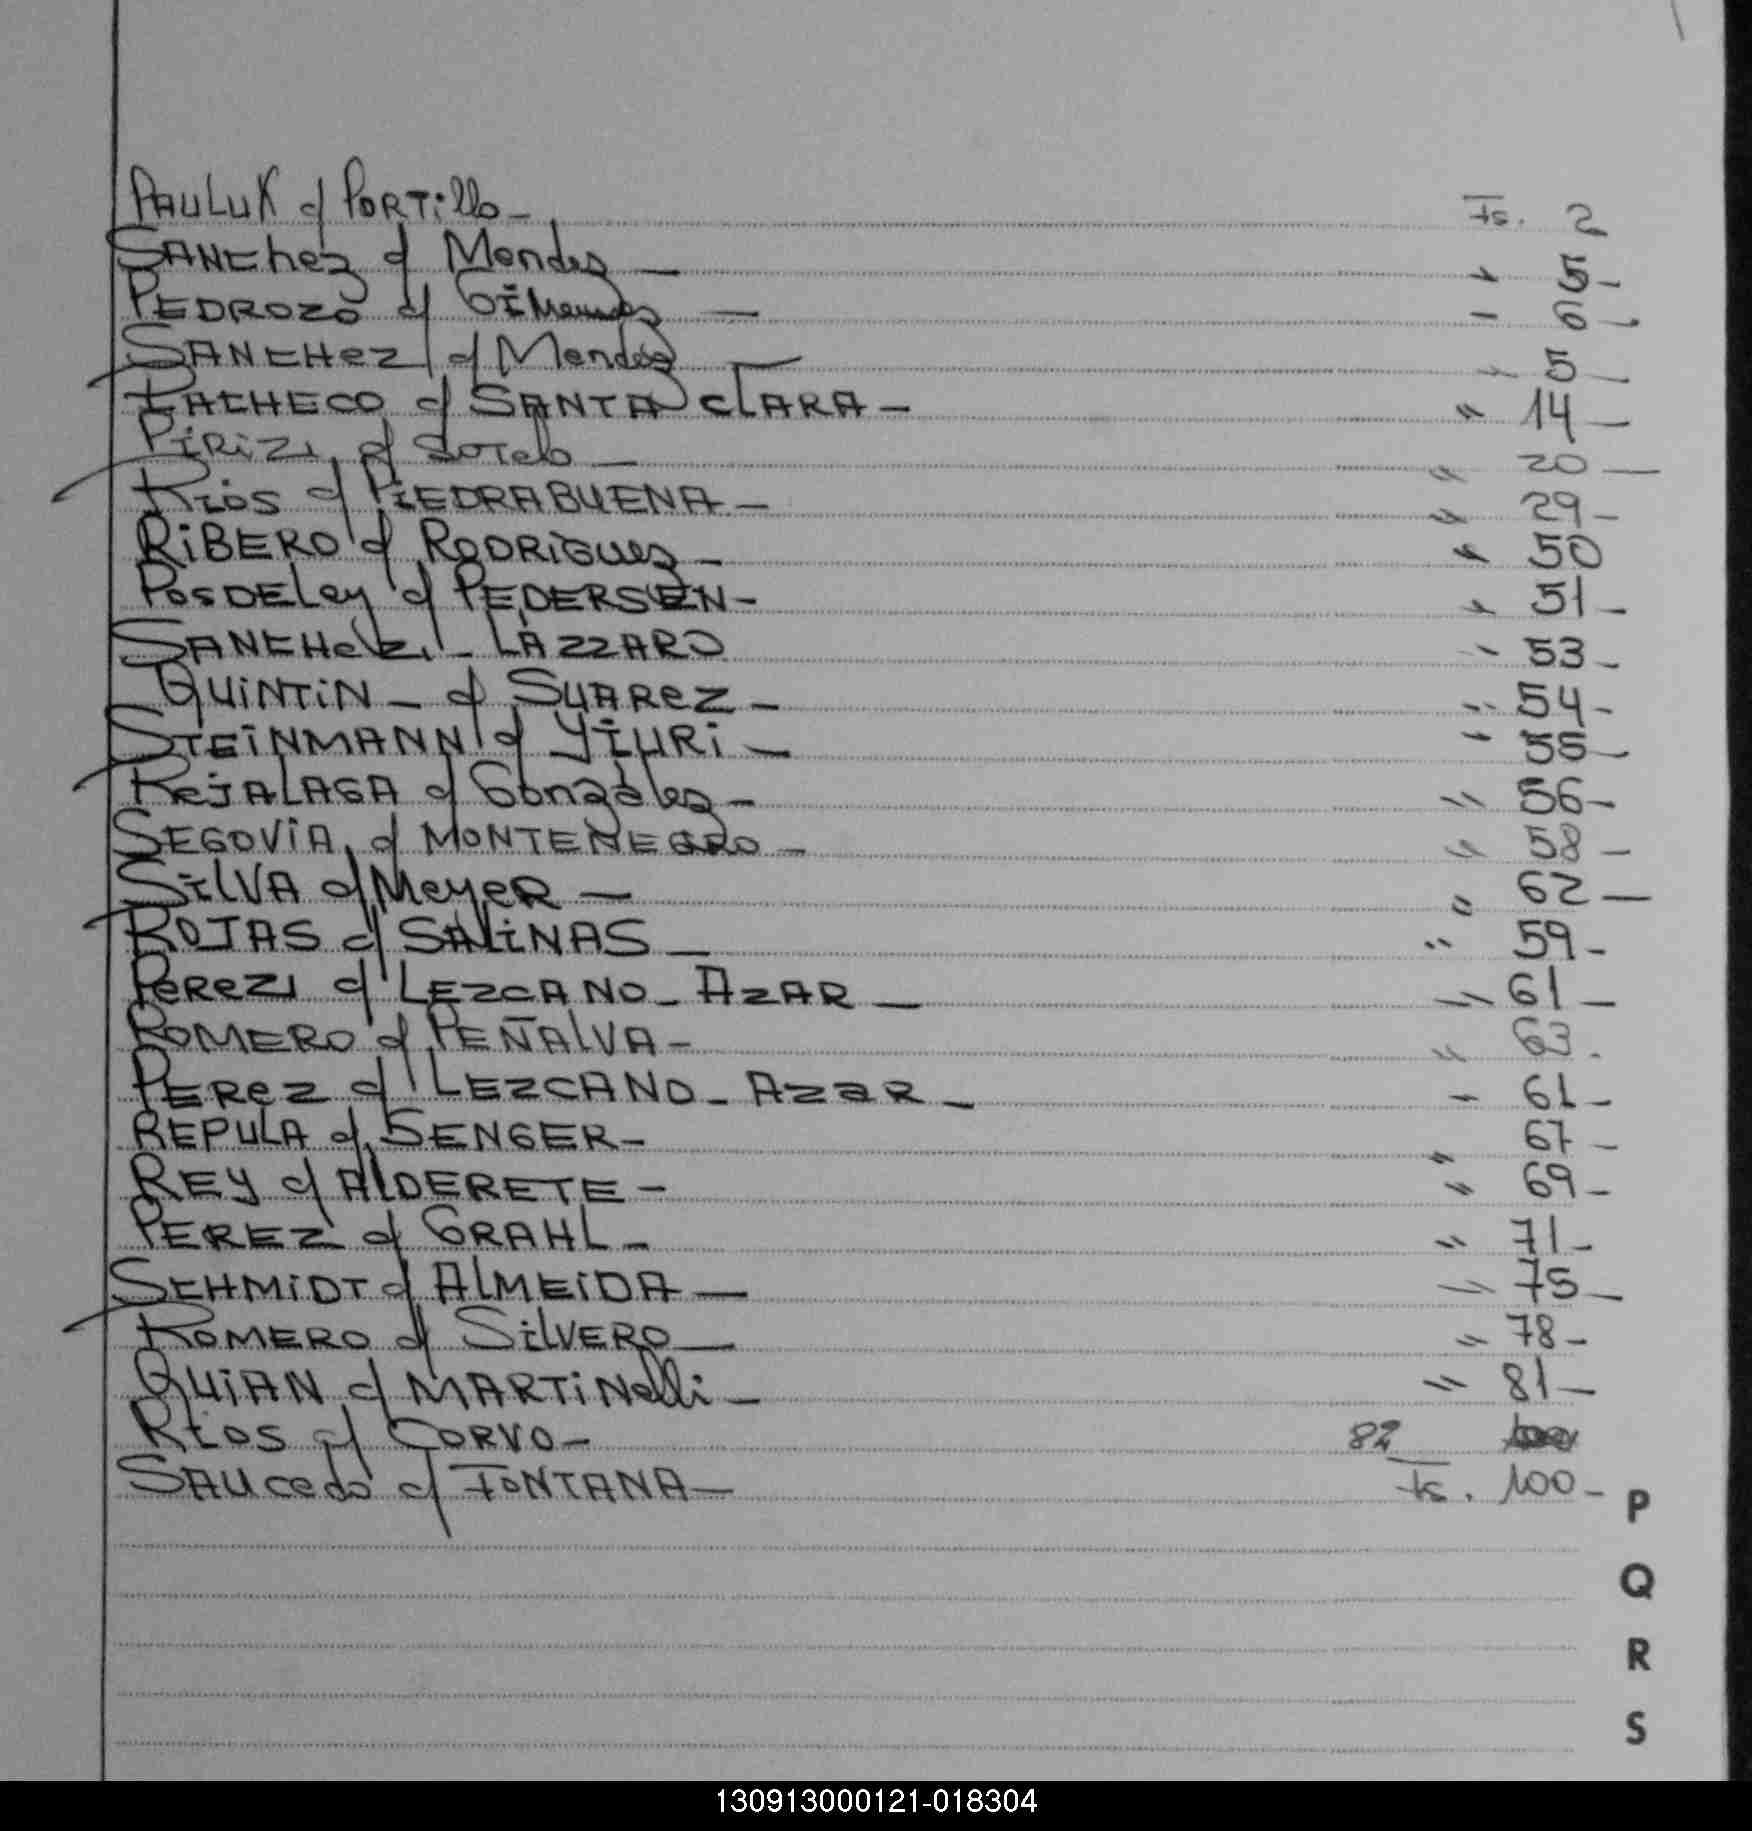 PAULUK c/ PORTillo - Fs. 2
SANChez c/ Mendez - " 5 -
PEDROZO c/ GiMenez - " 6 -
SANCHez c/ Mendez - " 5 -
PACHECO c/ SANTA CLARA - " 14 -
PiRiz c/ SoTelo - " 20 -
Rios c/ PIEDRABUENA - " 29 -
RiBERO c/ RODRiGuez - " 50
PosDELey c/ PEDERSEN - " 51 -
SANCHez - LAZZARO " 53 -
QUiNTiN - c/ SUAReZ - " 54 -
STEiNMANN c/ YiURi - " 55 -
ReJALAGA c/ Gonzalez - " 56 -
SEGOViA c/ MONTENEGRO - " 58 -
SilVA c/ MeyeR - " 62 -
ROJAS c/ SALiNAS - " 59 -
PeRez c/ LEZCANO - AzAR - " 61 -
ROMERO c/ PEÑAlVA - " 63.
PERez c/ LEZCANO - AzaR - " 61 -
REPULA c/ SENGER - " 67 -
REY c/ AlDERETE - " 69 -
PEREZ c/ GRAHL - " 71 -
SCHMiDT c/ AlMEiDA - " 75 -
ROMERO c/ SilVERO - " 78 -
QUiAN c/ MARTiNelli - " 81 -
Rios c/ CORVO - 82
SAUcedo c/ FONTANA - Fs. 100 -
P
Q
R
S
130913000121-018304